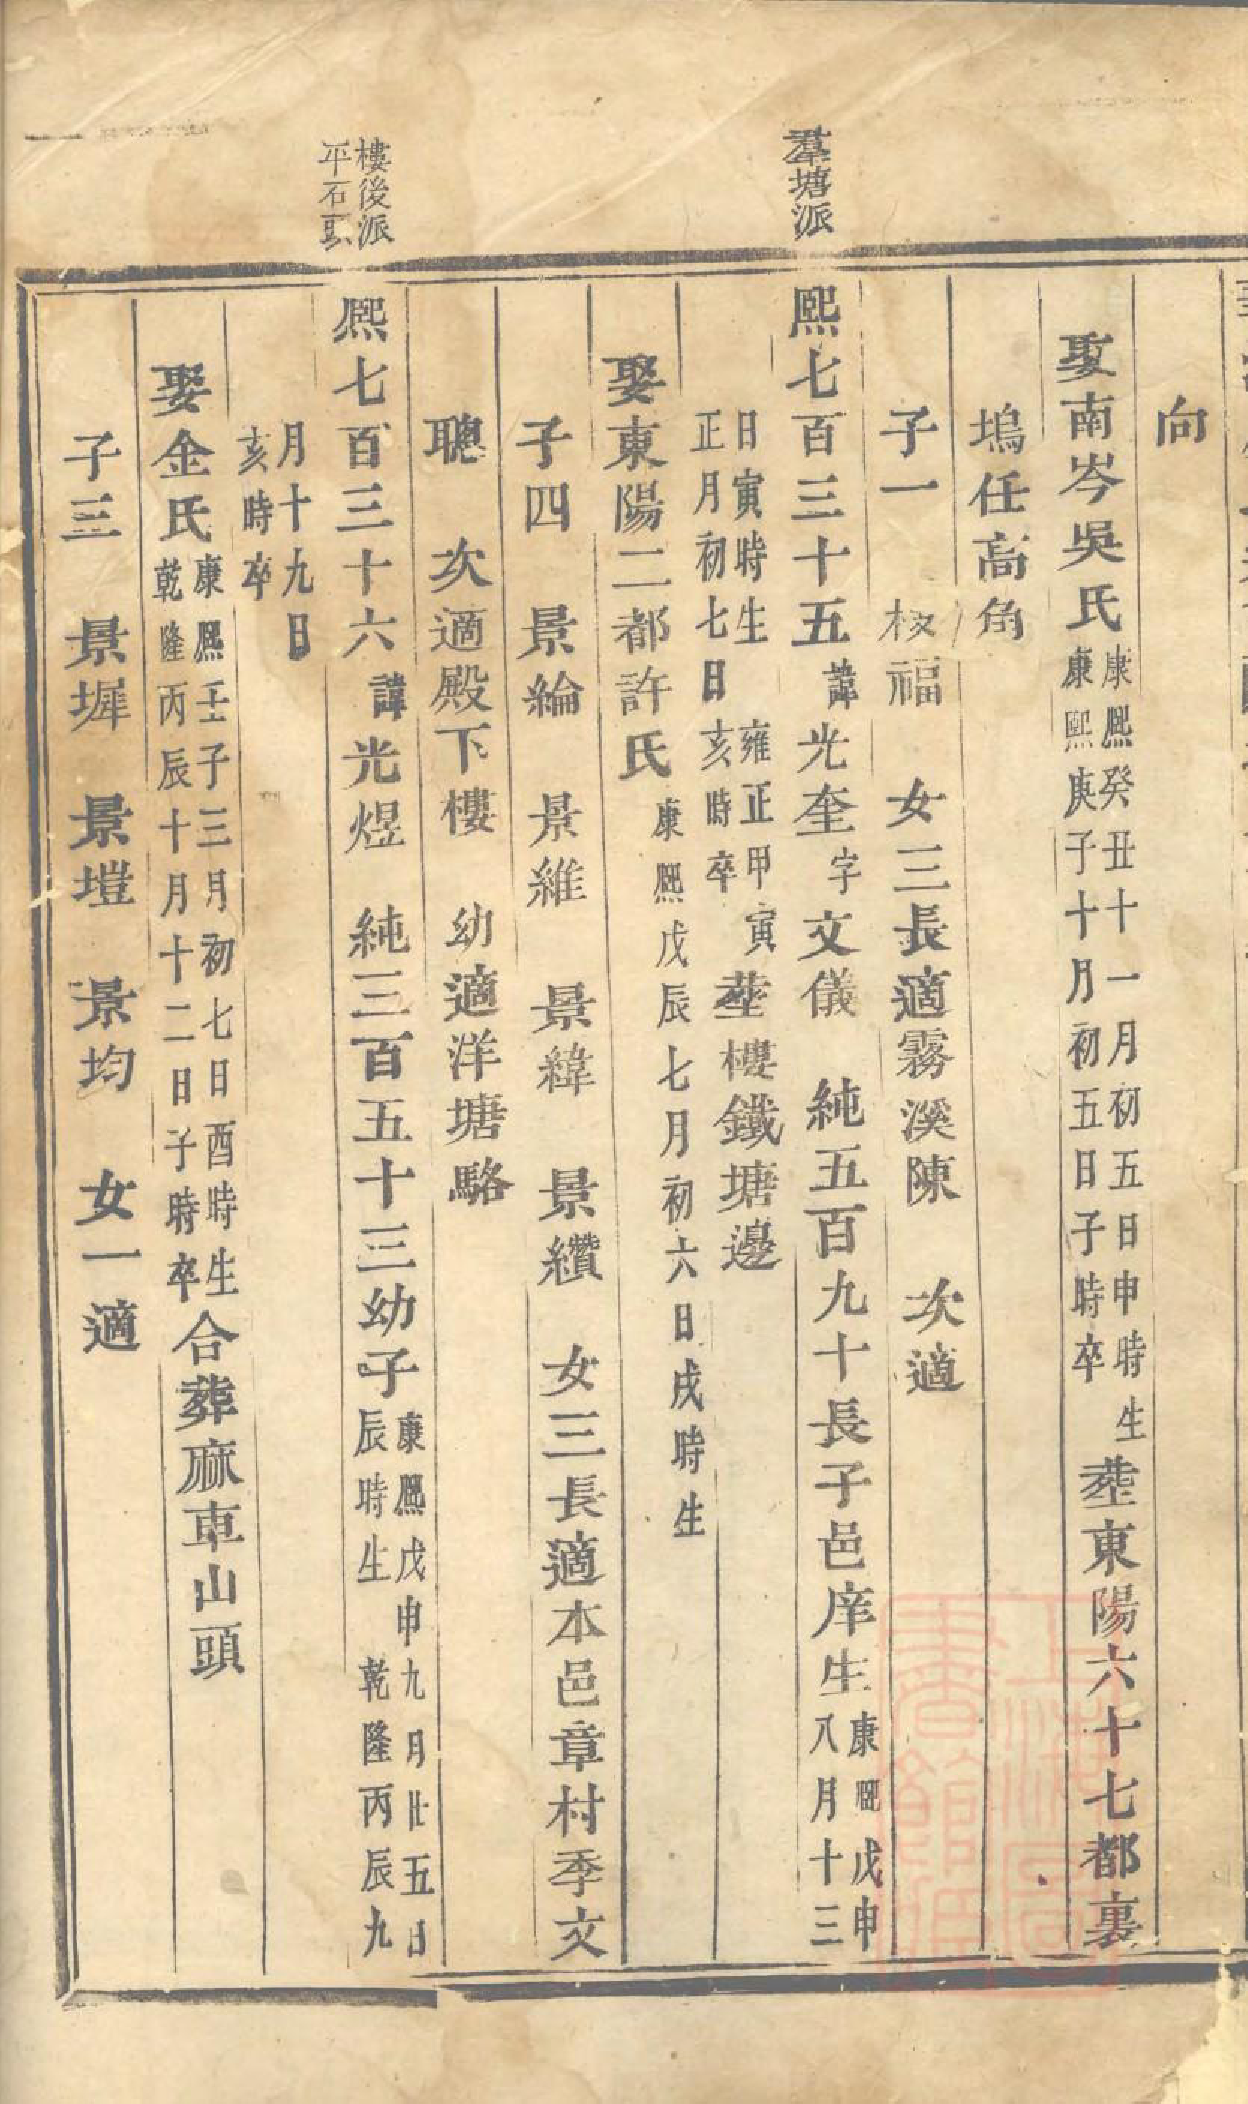 向
娶南岑吳氏康熙癸丑十一月初五日申時生康熙庚子十月初五日子時卒塟東陽六十七都裏
塢任高角
子一 福 女三長適霧溪陳 次適
羣塘派
熙七百三十五諱光奎字文儀 純五百九十長子邑庠生康熙戊申八月十三
日寅時生雍正甲寅正月初七日亥時卒塟樓鐵塘邊
娶東陽二都許氏康熙戊辰七月初六日戌時生
子四 景綸 景維 景緯 景纘 女三長適本邑章村季文
聰 次適殿下樓 幼適洋塘駱
樓後派
平石
熙七百三十六諱光煜 純三百五十三幼子康熙戊申九月廿五日辰時生乾隆丙辰九
月十九日亥時卒
娶金氏康熙壬子三月初七日酉時生乾隆丙辰十月十二日子時卒合葬麻車山頭
子三 景墀 景塏 景均 女一適